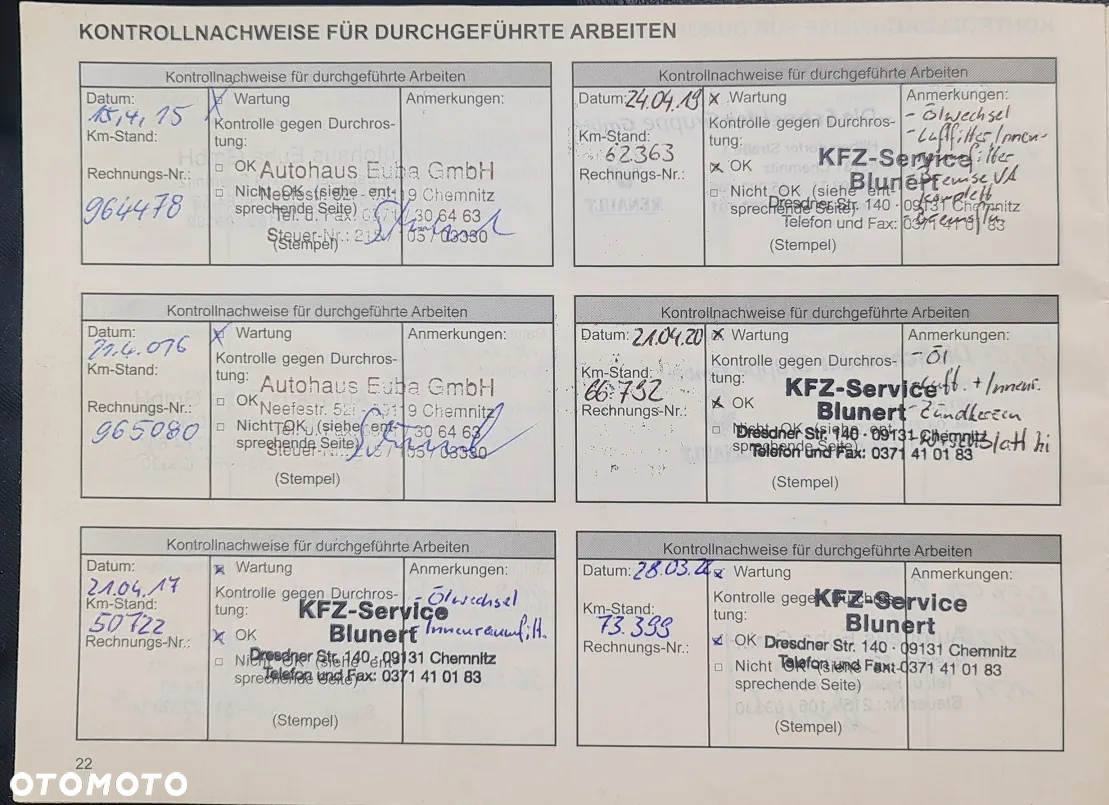 KONTROLLNACHWEISE FÜR DURCHGEFÜHRTE ARBEITEN
Kontrollnachweise für durchgeführte Arbeiten
Datum:
15,4,15
Km-Stand:
Rechnungs-Nr.:
964478
Wartung
Kontrolle gegen Durchros-
tung:
OK
Nicht OK (siehe ent-
sprechende Seite)
(Stempel)
Autohaus Euba GmbH
Neefestr. 09119 Chemnitz
Tel. u. Fax: 0371 / 30 64 63
Steuer-Nr.: 215 / 105 / 03330
Anmerkungen:
Kontrollnachweise für durchgeführte Arbeiten
Datum: 24.04.19
Km-Stand:
62363
Rechnungs-Nr.:
x Wartung
Kontrolle gegen Durchros-
tung:
x OK
Nicht OK (siehe ent-
sprechende Seite)
(Stempel)
KFZ-Service
Blunert
Dresdner Str. 140 · 09131 Chemnitz
Telefon und Fax: 0371 41 01 83
Anmerkungen:
- Ölwechsel
- Luftfilter/Innen-
Komplett
Kontrollnachweise für durchgeführte Arbeiten
Datum:
21.4.016
Km-Stand:
Rechnungs-Nr.:
965080
Wartung
Kontrolle gegen Durchros-
tung:
OK
Nicht OK (siehe ent-
sprechende Seite)
(Stempel)
Autohaus Euba GmbH
Neefestr. 09119 Chemnitz
Tel. u. Fax: 0371 / 30 64 63
Steuer-Nr.: 215 / 105 / 03330
Anmerkungen:
Kontrollnachweise für durchgeführte Arbeiten
Datum: 21.04.20
Km-Stand:
66.792
Rechnungs-Nr.:
x Wartung
Kontrolle gegen Durchros-
tung:
x OK
Nicht OK (siehe ent-
sprechende Seite)
(Stempel)
KFZ-Service
Blunert
Dresdner Str. 140 · 09131 Chemnitz
Telefon und Fax: 0371 41 01 83
Anmerkungen:
- Öl
- Luft. + Innenr.
- Zündkerzen
hi
Kontrollnachweise für durchgeführte Arbeiten
Datum:
21.04.17
Km-Stand:
50722
Rechnungs-Nr.:
x Wartung
Kontrolle gegen Durchros-
tung:
x OK
Nicht OK (siehe ent-
sprechende Seite)
(Stempel)
KFZ-Service
Blunert
Dresdner Str. 140 · 09131 Chemnitz
Telefon und Fax: 0371 41 01 83
Anmerkungen:
- Ölwechsel
Innenraumfilt.
Kontrollnachweise für durchgeführte Arbeiten
Datum: 28.03.22
Km-Stand:
73.399
Rechnungs-Nr.:
x Wartung
Kontrolle gegen Durchros-
tung:
x OK
Nicht OK (siehe ent-
sprechende Seite)
(Stempel)
KFZ-Service
Blunert
Dresdner Str. 140 · 09131 Chemnitz
Telefon und Fax: 0371 41 01 83
Anmerkungen:
22
OTOMOTO